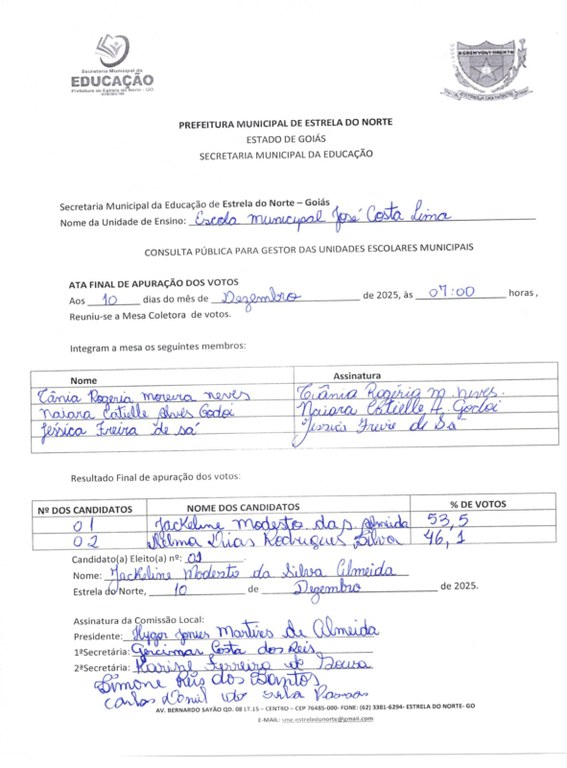 Secretaria Municipal da
EDUCAÇÃO
Prefeitura de Estrela do Norte - GO
PREFEITURA MUNICIPAL DE ESTRELA DO NORTE
ESTADO DE GOIÁS
SECRETARIA MUNICIPAL DA EDUCAÇÃO
Secretaria Municipal da Educação de Estrela do Norte – Goiás
Nome da Unidade de Ensino: Escola Municipal José Costa Lima
CONSULTA PÚBLICA PARA GESTOR DAS UNIDADES ESCOLARES MUNICIPAIS
ATA FINAL DE APURAÇÃO DOS VOTOS
Aos 10 dias do mês de Dezembro de 2025, às 07:00 horas,
Reuniu-se a Mesa Coletora de votos.
Integram a mesa os seguintes membros:
Nome Assinatura
Tânia Rogeria Moreira neves Tânia Rogéria M. neves.
Naiara Catielle Alves Godoi Naiara Catielle A. Godoi
Jéssica Freira de Sá Jéssica Freire de Sá
Resultado Final de apuração dos votos:
Nº DOS CANDIDATOS NOME DOS CANDIDATOS % DE VOTOS
01 Jackeline Modesto da S. Almeida 53,5
02 Dias Rodrigues Silva 46,1
Candidato(a) Eleito(a) nº: 01
Nome: Jackeline Modesto da Silva Almeida
Estrela do Norte, 10 de Dezembro de 2025.
Assinatura da Comissão Local:
Presidente: Hygor Martins de Almeida
1ªSecretária: Costa dos Reis
2ªSecretária: Ferreira de Souza
Simone Reis dos Santos
Carlos da Silva
AV. BERNARDO SAYÃO QD. 08 LT.15 – CENTRO – CEP 76485-000- FONE: (62) 3381-6294- ESTRELA DO NORTE- GO
E-MAIL: sme.estreladonorte@gmail.com